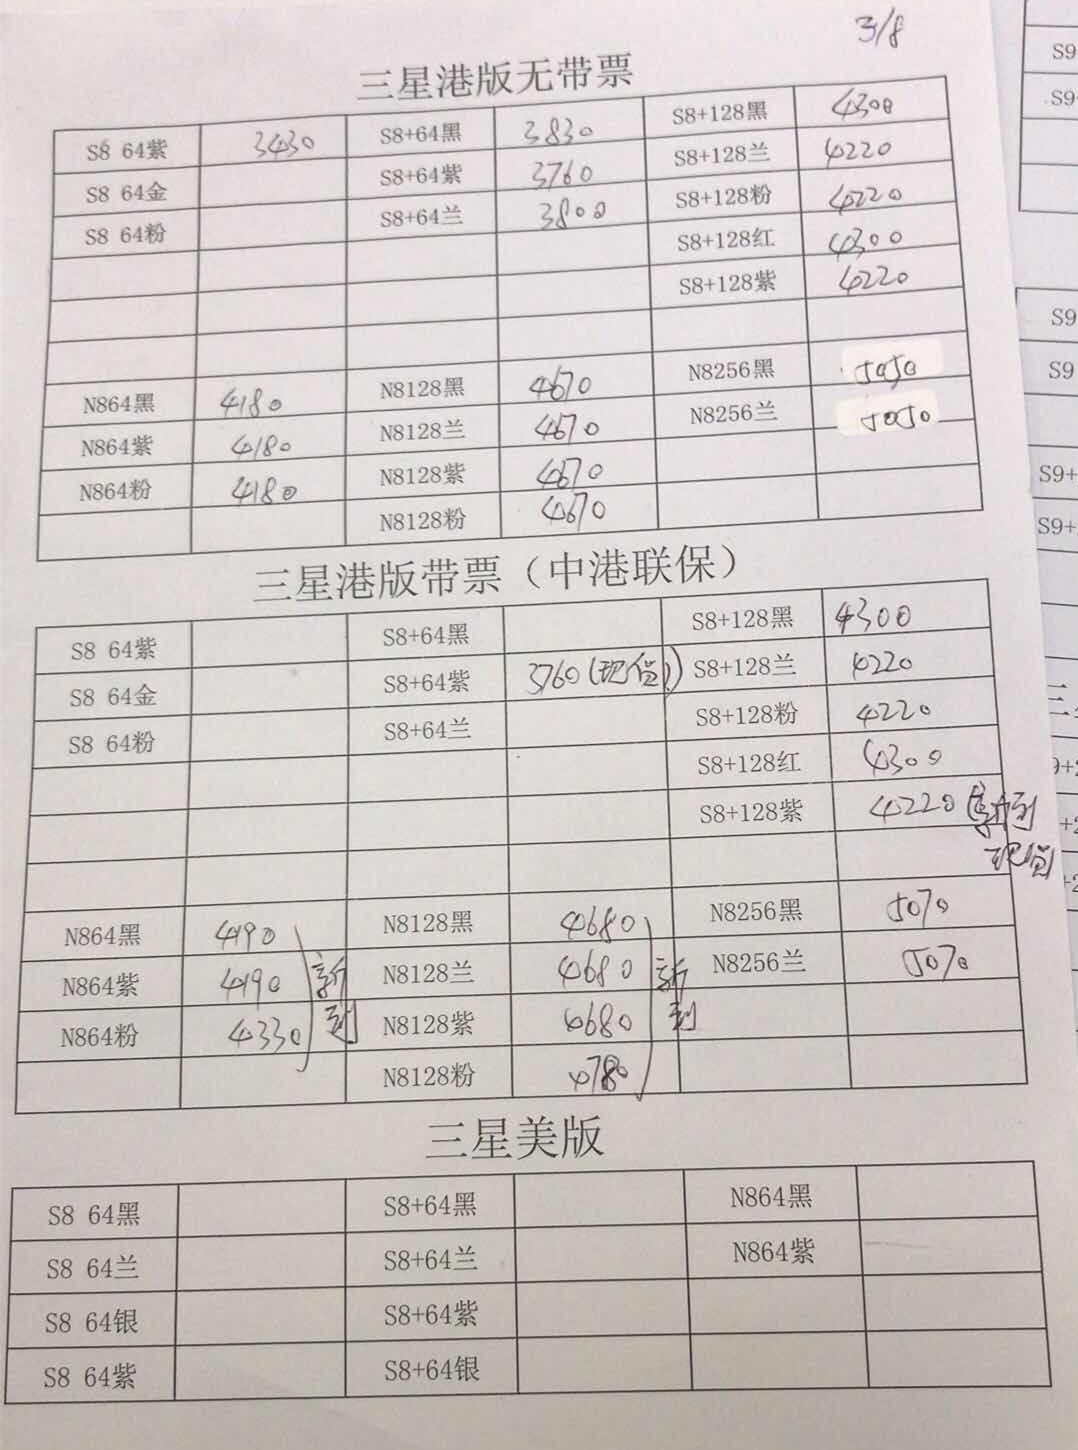 3/8
三星港版无带票
S8 64紫 3430 S8+64黑 3830 S8+128黑 4300
S8 64金 S8+64紫 3760 S8+128兰 4220
S8 64粉 S8+64兰 3800 S8+128粉 4220
S8+128红 4300
S8+128紫 4220
N864黑 4180 N8128黑 4670 N8256黑 5050
N864紫 4180 N8128兰 4670 N8256兰 5050
N864粉 4180 N8128紫 4670
N8128粉 4670
三星港版带票（中港联保）
S8 64紫 S8+64黑 S8+128黑 4300
S8 64金 S8+64紫 3760(现货) S8+128兰 4220
S8 64粉 S8+64兰 S8+128粉 4220
S8+128红 4300
S8+128紫 4220 (新到
现货
N864黑 4190 N8128黑 4680 N8256黑 5070
N864紫 4190 新到 N8128兰 4680 新到 N8256兰 5070
N864粉 4330 N8128紫 4680
N8128粉 4780
三星美版
S8 64黑 S8+64黑 N864黑
S8 64兰 S8+64兰 N864紫
S8 64银 S8+64紫
S8 64紫 S8+64银
S9
S9
S9
S9
S9+
S9+